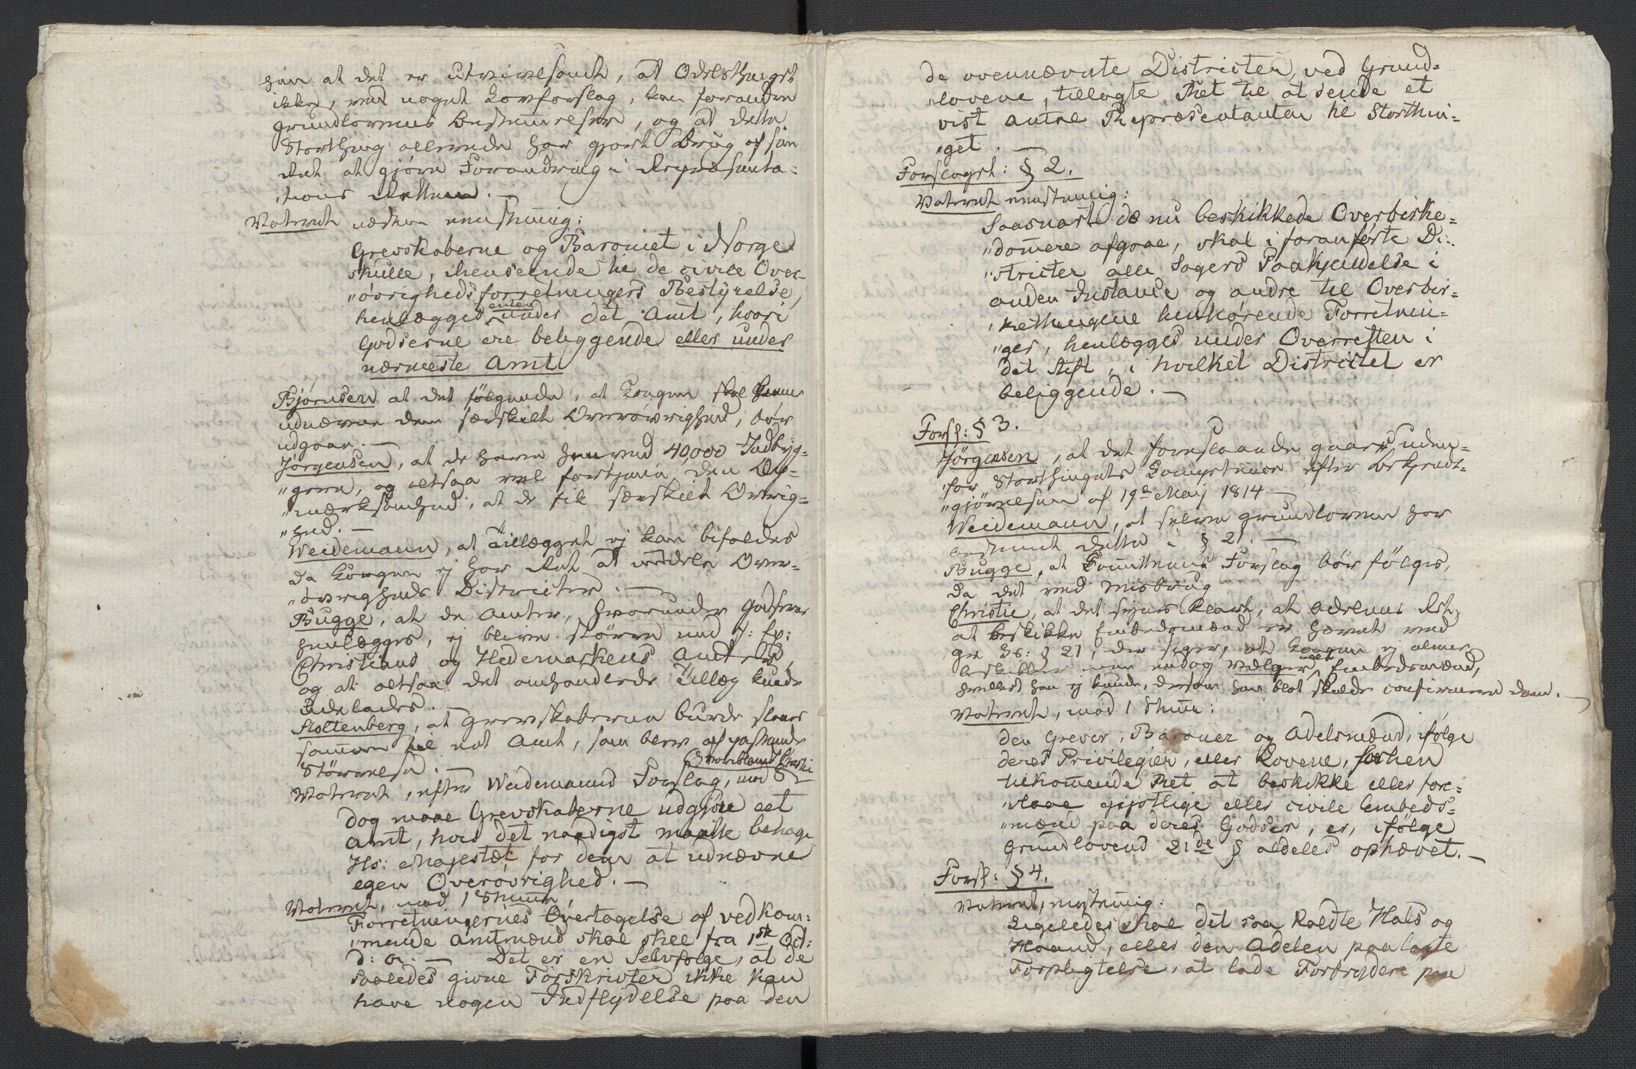 han at det er utvivlsomt, at Odelsthinget
ikke, ved noget Lovforslag, kan forandre
Grundlovens Bestemmelser, og at dette
Storthing allerede har gjort Brug af sin
Ret at gjøre Forandring i Repræsenta-
„tions Retten. —
Voteret næsten eenstemmig:
Grevskaberne og Baroniet i Norge
skulle, i henseende til de civile Over-
„øvrigheds forretningers Bestyrelse,
henlægges enten under det Amt, hvori
Godserne ere beliggende eller under
nærmeste Amt
Bjørnsen at det følgende, at Kongen skal kunne
udnævne dem særskilt Overøvrighed, bør
udgaae. —
Jörgensen, at de havde henved 40,000 Indbyg-
„gere, og altsaa vel fortjene den Op-
„mærksomhed, at de fik særskilt Øvrig-
„hed. —
Weidemann, at Tillægget ej kan bifaldes
da Kongen ej har Ret at inddele Over-
„øvrigheds Districter. —
Bugge, at de Amter, hvorunder Godserne
henlægges, ej bleve større end f: Ex:
Christians og Hedemarkens Amter,
og at altsaa det omhandlede Tillæg kunde
udelades.
Stoltenberg, at Grevskaberne burde slaaes
sammen til eet Amt, som blev af passende
Størrelse. —
Voteret, efter Weidemanns Forslag, mod
Dog maae Grevskaberne udgjøre eet
Amt, hvis det naadigst maatte behage
Hs: Majestæt for dem at udnævne
egen Overøvrighed. —
Voteret, mod 1 Stemme,
Forretningernes Overtagelse af vedkom-
„mende Amtmænd skal skee fra 1ste Oct:
d: A: — Det er en Selvfølge, at de
saaledes givne Forskrivter ikke kan
have nogen Indflydelse paa den
de ovennævnte Districter, ved Grund-
„lovene, tillagte Ret til at sende et
vist Antal Repræsentanter til Storthin-
„get. —
Forslaget: § 2.
Voteret eenstemmig:
Saasnart de nu beskikkede Overbirke-
„dommere afgaae, skal i foranførte Di-
„stricter alle Sagers Paakjendelse i
anden Instance og andre til Overbir-
„kethingene henhörende Forretnin-
„ger, henlægges under Overretten i
det Stift, i hvilket Districtet er
beliggende. —
Forsl: § 3.
Jörgensen, at det foreslaaede gaaer uden-
„for Storthingets Competence efter Bekjendt-
„gjørelsen af 19de Maij 1814 —
Weidemann, at selve Grundloven har
bestemt dette i § 21. —
Bugge, at Committeens Forslag bør følges,
da det ved Misbrug
Christie, at det synes klart, at Adelens Ret
at beskikke Embedsmænd er hævet ved
Gr: Ls: § 21, der siger, at Kongen ej alene
beskikker men endog vælger alle Embedsmænd,
hvilket han ej kunde, dersom han blot skulde confirmere dem. —
Voteret, mod 1 Stemme:
den Grever, Baroner og Adelsmænd, ifølge
deres Privilegier, eller Lovene, forhen
tilkommende Ret at beskikke eller fore-
„slaae gejstlige eller civile Embeds-
„mænd paa deres Godser, er, ifølge
Grundlovens 21de § aldeles ophævet. —
Forsl: § 4.
Voteret, enstemmig:
Ligeledes skal det saa kaldte Hals og
Haand, eller den Adelen paalagte
Forpligtelse, at lade Forbrydere paa